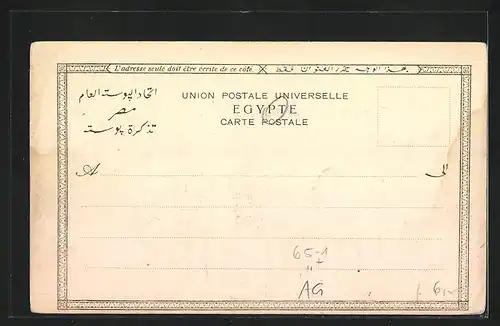 L'adresse seule doit être écrite de ce côté. هذا الوجه يحرر العنوان فقط
اتحاد البوسته العام
مصر
تذكرة بوسته
UNION POSTALE UNIVERSELLE
EGYPTE
CARTE POSTALE
A
الى
65-1
AG
6,-